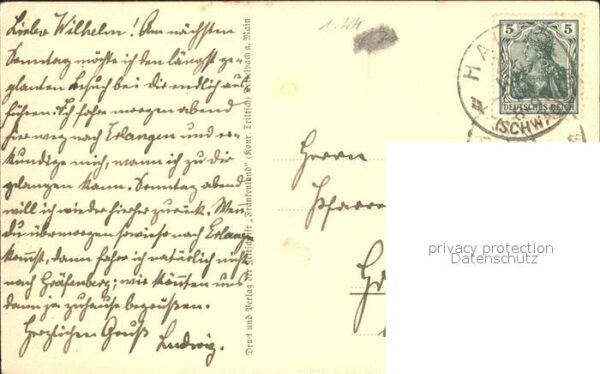 Lieber Wilhelm! Am nächsten
Sonntag möchte ich den längst ge-
planten Besuch bei dir endlich aus-
führen. Ich fahre morgen abend
hier weg nach Erlangen und er-
kundige mich, wann ich zu dir
gelangen kann. Sonntag abend
will ich wieder hierher zurück. Wenn
du übermorgen sowieso nach Erlangen
kommst, dann fahre ich natürlich nicht
nach Gräfenberg; wir können uns
dann ja zuhause begrüßen.
Herzlichen Gruß
Ludwig.
Druck und Verlag der Zeitschrift „Frankenland" (Konr. Triltsch) Dettelbach a. Main
5 5
DEUTSCHES REICH
HA
(SCHW
Herrn
Pfarre
privacy protection
Datenschutz